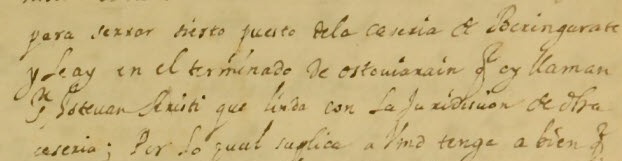 para serrar sierto puesto dela caseria de Beringarate
y Leay en el terminado de ostouiarain q̃ oy llaman
Esteuan que linda con la Juridision de dha
caseria; Por lo qual suplica a Vmd tenga a bien q̃